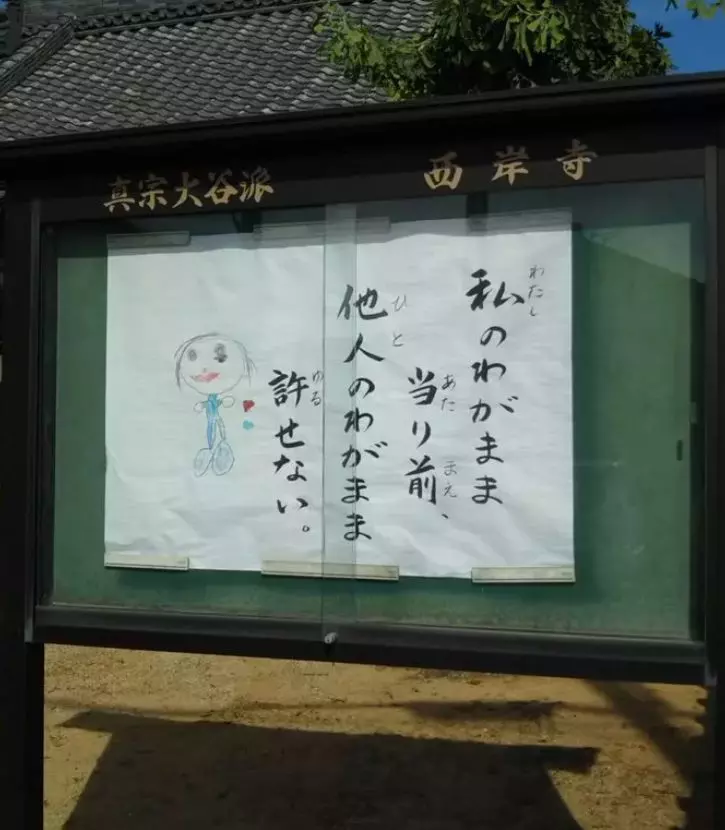 真宗大谷派
西岸寺
私のわがまま
わたし
当り前、
あた まえ
他人のわがまま
ひと
許せない。
ゆる